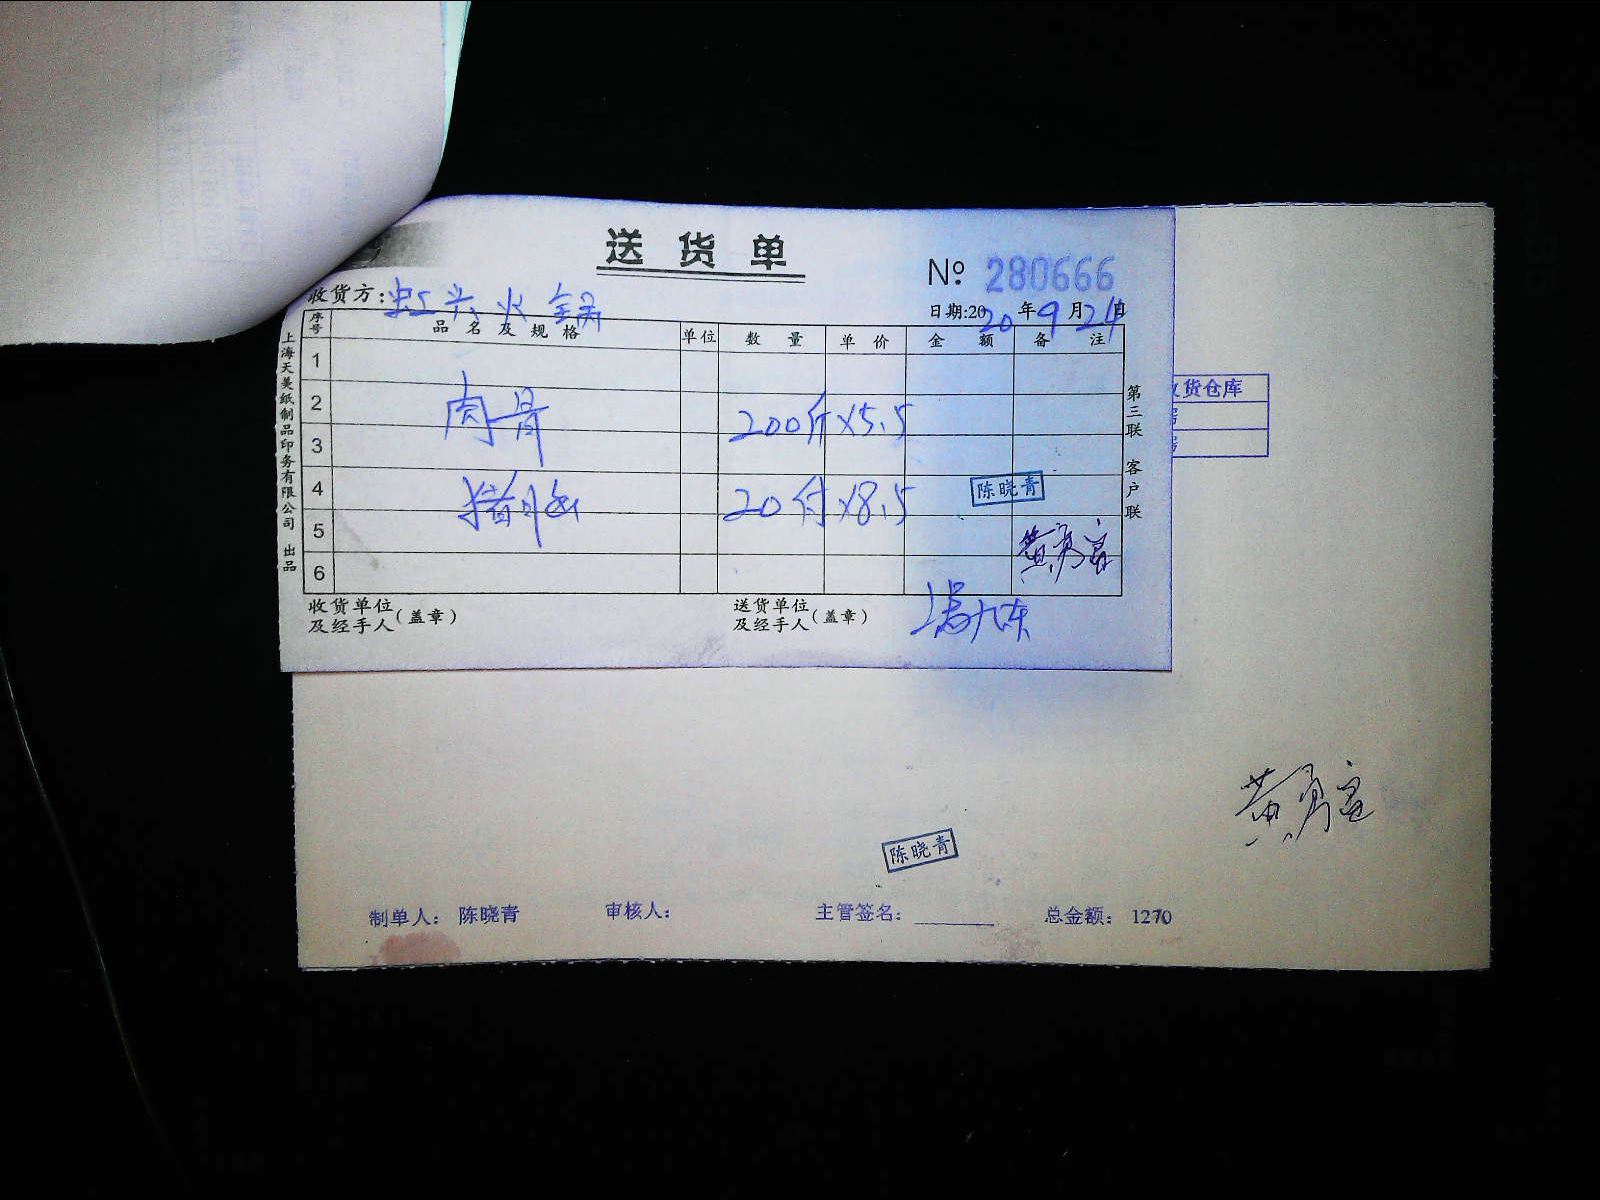 送货单
No. 280666
收货方:虹兴火锅
日期:2020年9月24日
序号 品名及规格 单位 数量 单价 金额 备注
1
2 肉骨 200斤 ×5.5
3
4 猪脑 20付 ×8.5
5
6
陈晓青
黄秀富
收货单位及经手人(盖章)
送货单位及经手人(盖章)
上海天美纸制品印务有限公司 出品
第三联 客户联
货仓库
陈晓青
制单人: 陈晓青 审核人: 主管签名: 总金额: 1270